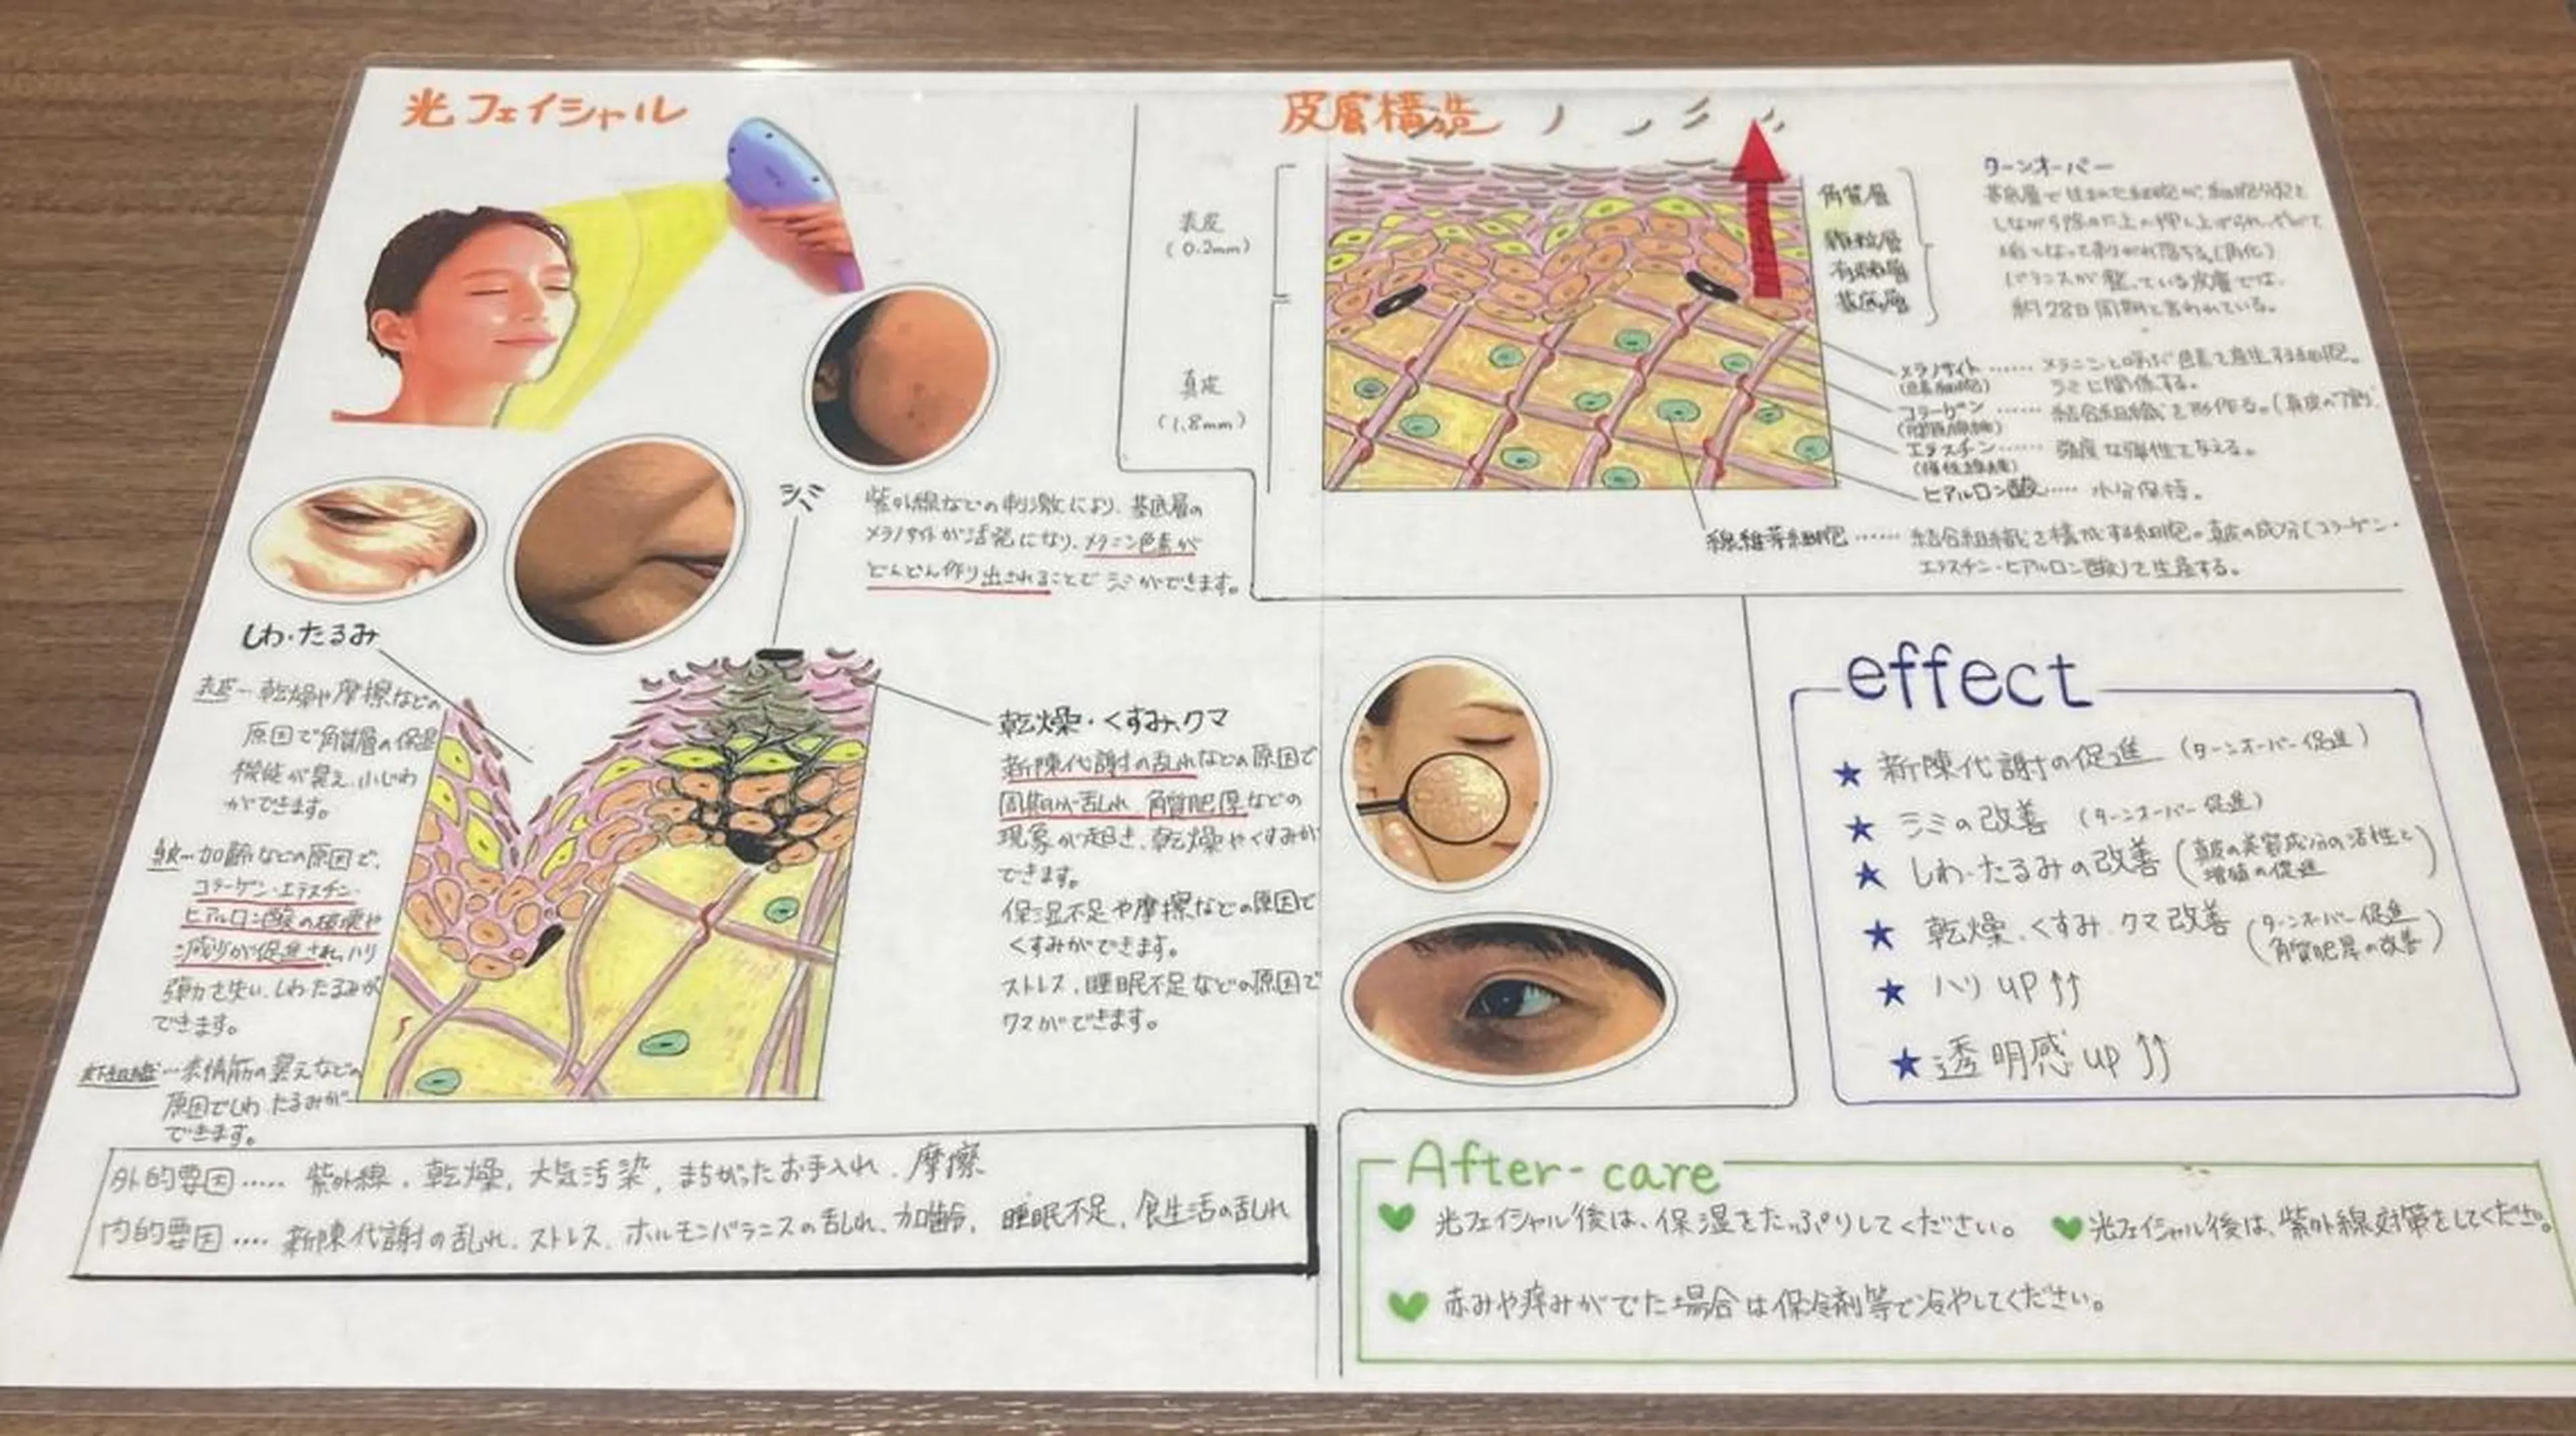 光フェイシャル
シミ
紫外線などの刺激により、基底層の
メラノサイトが活発になり、メラニン色素が
どんどん作り出されることでシミができます。
しわ・たるみ
表皮…乾燥や摩擦などの
原因で角質層の保湿
機能が衰え、小じわ
ができます。
真皮…加齢などの原因で、
コラーゲン・エラスチン・
ヒアルロン酸の破壊や
減少が促進され、ハリ
弾力を失い、しわたるみが
できます。
皮下組織…表情筋の衰えなどの
原因でしわ、たるみが
できます。
乾燥・くすみ、クマ
新陳代謝の乱れなどの原因で
周期が乱れ、角質肥厚などの
現象が起き、乾燥やくすみが
できます。
保湿不足や摩擦などの原因で
くすみができます。
ストレス、睡眠不足などの原因で
クマができます。
外的要因…… 紫外線、乾燥、大気汚染、まちがったお手入れ、摩擦
内的要因…… 新陳代謝の乱れ、ストレス、ホルモンバランスの乱れ、加齢、睡眠不足、食生活の乱れ
皮膚構造
表皮
(0.2mm)
真皮
(1.8mm)
角質層
顆粒層
有棘層
基底層
ターンオーバー
基底層で生まれた細胞が、細胞分裂を
しながら
垢となって剥がれ落ちる。(角化)
バランスが整っている皮膚では、
約28日周期と言われている。
メラノサイト……メラニンと呼ぶ色素を産生する細胞。
(色素細胞) シミに関係する。
コラーゲン……結合組織を形作る。(真皮の7割)
(膠原線維)
エラスチン……適度な弾性を与える。
(弾性線維)
ヒアルロン酸……水分保持。
線維芽細胞……結合組織を構成する細胞。真皮の成分(コラーゲン・
エラスチン・ヒアルロン酸)を生産する。
effect
★ 新陳代謝の促進 (ターンオーバー促進)
★ シミの改善 (ターンオーバー促進)
★ しわ・たるみの改善 (真皮の美容成分の活性と
増殖の促進)
★ 乾燥、くすみ、クマ改善 (ターンオーバー促進
角質肥厚の改善)
★ ハリ up ↑↑
★ 透明感 up ↑↑
After-care
♥ 光フェイシャル後は、保湿をたっぷりしてください。
♥ 光フェイシャル後は、紫外線対策をしてください。
♥ 赤みや痒みがでた場合は保冷剤等で冷やしてください。